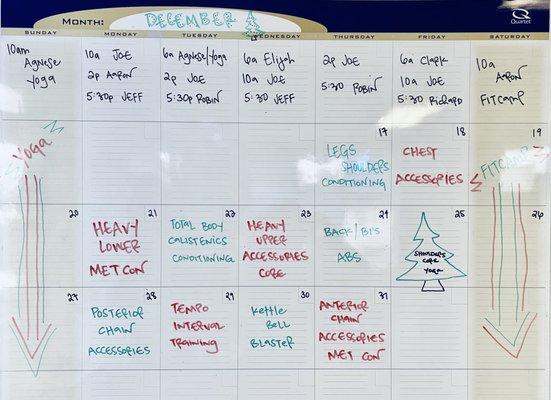 MONTH: DECEMBER
Quartet
SUNDAY MONDAY TUESDAY WEDNESDAY THURSDAY FRIDAY SATURDAY
10am
Agnese
Yoga
10a JOE
2p AARON
5:30p JEFF
6a Agnese/Yoga
2p JOE
5:30p ROBIN
6a Elijah
10a JOE
5:30 JEFF
2p JOE
5:30 ROBIN
6a Clark
10a JOE
5:30 Richard
10a
AARON
FITCAMP
YOGA
17
LEGS
SHOULDERS
CONDITIONING
18
CHEST
ACCESSORIES
19
FITCAMP
20
21
HEAVY
LOWER
METCON
22
TOTAL BODY
CALISTENICS
CONDITIONING
23
HEAVY
UPPER
ACCESSORIES
CORE
24
BACK/BI'S
ABS
25
SHOULDERS
CORE
YOGA
26
27
28
POSTERIOR
CHAIN
ACCESSORIES
29
TEMPO
INTERVAL
TRAINING
30
KETTLE
BELL
BLASTER
31
ANTERIOR
CHAIN
ACCESSORIES
MET CON